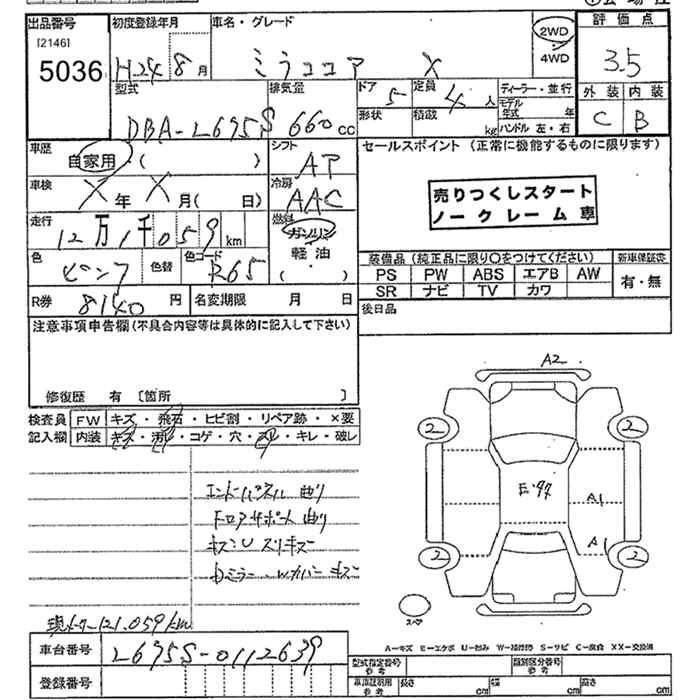 出品番号 初度登録年月 車名・グレード 評価点
[2146]
5036 H24年8月 ミラココア X 2WD・4WD 3.5
型式 排気量 ドア 5 定員 4人 ディーラー・並行 外装 内装
モデル年式 年
DBA-L675S 660cc 形状 積載 kg ハンドル 左・右 C B
車歴 自家用・( ) シフト AT セールスポイント (正常に機能するものに限ります)
車検 X年 X月( 日) 冷房 AAC
売りつくしスタート
ノークレーム車
走行 12万1千059km 燃料 ガソリン
軽油
( )
色 ピンク 色替 色コード R65
装備品(純正品に限り〇をつけてください) 新車保証書
PS PW ABS エアB AW 有・無
SR ナビ TV カワ
R券 8140円 名変期限 月 日 後日品
注意事項申告欄(不具合内容等は具体的に記入して下さい)
修復歴 有 [箇所 ]
検査員 FW キズ・飛石・ヒビ割・リペア跡・×要
記入欄 内装 キズ・汚れ・コゲ・穴・スレ・キレ・破レ
A2
2 2
エンドパネル 曲り
コアサポート 曲り
A1
A1
2 2
現メーター121,059km
スペア
A-キズ E-エクボ U-凹み W-補修跡 S-サビ C-腐食 XX-交換済
車台番号 L675S-0112639
型式指定番号 参考 類別区分番号 参考
登録番号
車庫証明用 参考 長さ cm 幅 cm 高さ cm